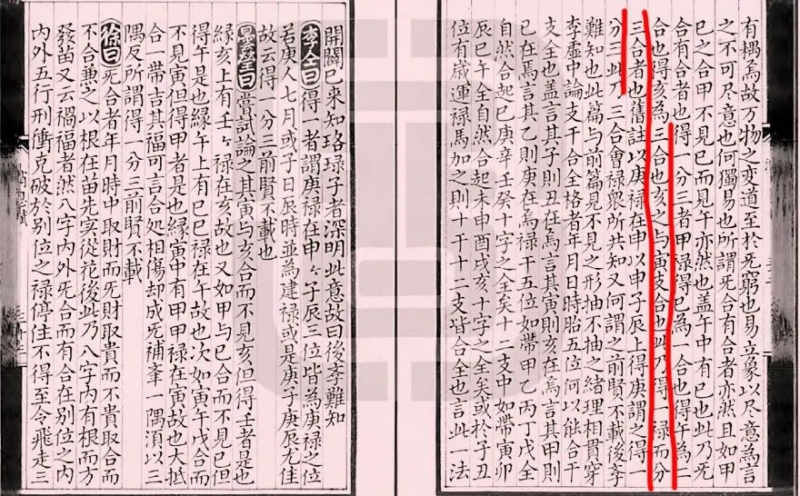 有搆為故万物之変道至於无窮也易立象以尽意為言
之不可尽意也何獨易也所謂无合有合者亦然且如甲
巳之合甲不見巳而見午亦然也盖午中有巳也此乃无
合有合者也得一分三者甲禄得巳為一合也得午為一
合也得亥為三合也亥之与寅支合也此乃得一禄而分
三合者也舊註以庚禄在申以申子辰上得庚謂之得一
分三此乃三合會禄衆所共知又何謂之前賢不載後李
難知也此篇与前篇見不見之形抽不抽之緒理相貫穿
李虚中論支干合全格者年月日時胎五位何以能合干
支全也盖言其子則丑在焉言其寅則亥在焉言其甲則
巳在焉言其乙則庚在焉禄干五位如帯甲乙丙丁戊全
自然合起巳庚辛壬癸十字之全矣十二支中如帯寅卯
辰巳午全自然合起未申酉戌亥十字之全矣或於子丑
位有歳運禄馬加之則十干十二支皆合全也言此一法
開闢已来知珞琭子者深明此意故曰後李難知
李仝曰得一者謂庚禄在申々子辰三位皆為庚禄之位
若庚人七月或子日辰時並為建禄或是庚子庚辰尤佳
故云得一分三前賢不載也
曇瑩曰嘗試論之其寅与亥合而不見亥但得壬者是也
緑亥上有壬々禄在亥故也又如甲与巳合而不見巳但
得午是也縁午上有巳巳禄在午故也次如寅午戌合而
不見寅但得甲者是也縁寅中有甲甲禄在寅故也大抵
合一帯言其福可言合処相傷却成无補夆一隅湏以三
隅反所謂得一分三前賢不載
徐曰无合者年月時中取財而无財取貴而不貴取合而
不合兼之以根在苗先实従花後此乃八字内有根而方
發苗又云禍福者然八字内外无合而有合在別位之内
内外五行刑衝克破於別位之禄停住不得至令飛走三